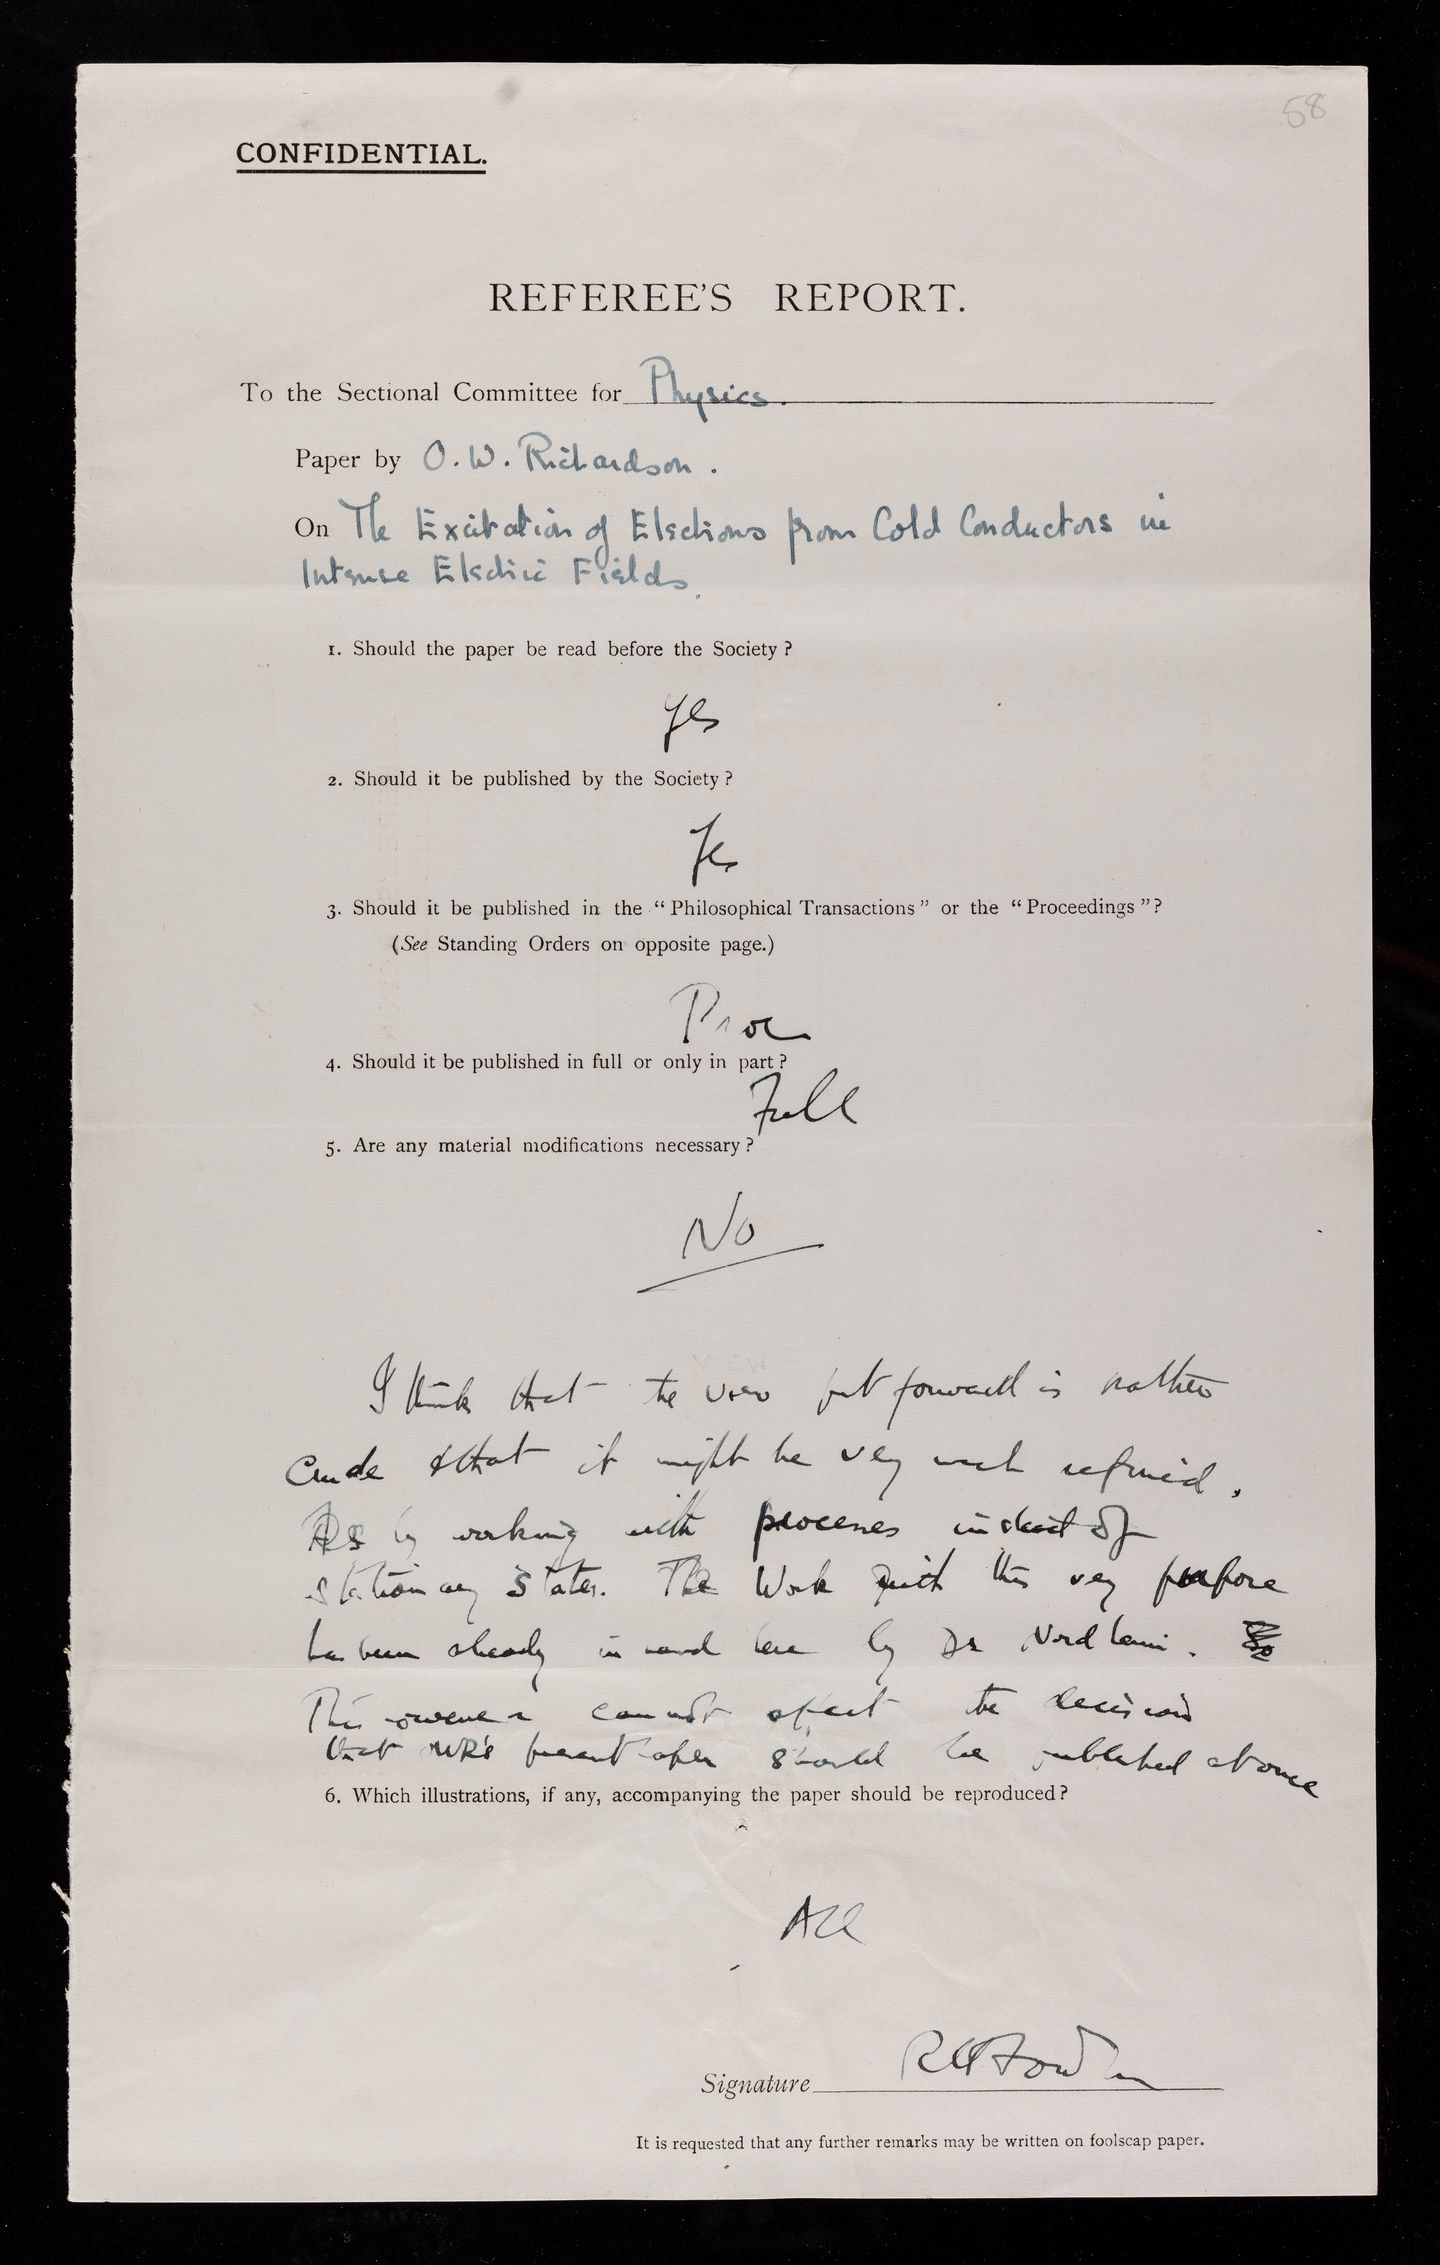 58
CONFIDENTIAL.
REFEREE'S REPORT.
To the Sectional Committee for Physics.
Paper by O. W. Richardson.
On The Excitation of Electrons from Cold Conductors in
Intense Electric Fields.
1. Should the paper be read before the Society?
Yes
2. Should it be published by the Society?
Yes
3. Should it be published in the "Philosophical Transactions" or the "Proceedings"?
(See Standing Orders on opposite page.)
Proc
4. Should it be published in full or only in part?
Full
5. Are any material modifications necessary?
No
I think that the view put forward is rather
crude & that it might be very much refined.
by working with processes instead of
stationary states. The work with this very purpose
has been already in hand here by Dr Nordheim.
This however cannot affect the decision
that present paper should be published at once
6. Which illustrations, if any, accompanying the paper should be reproduced?
All
Signature RHFowler
It is requested that any further remarks may be written on foolscap paper.